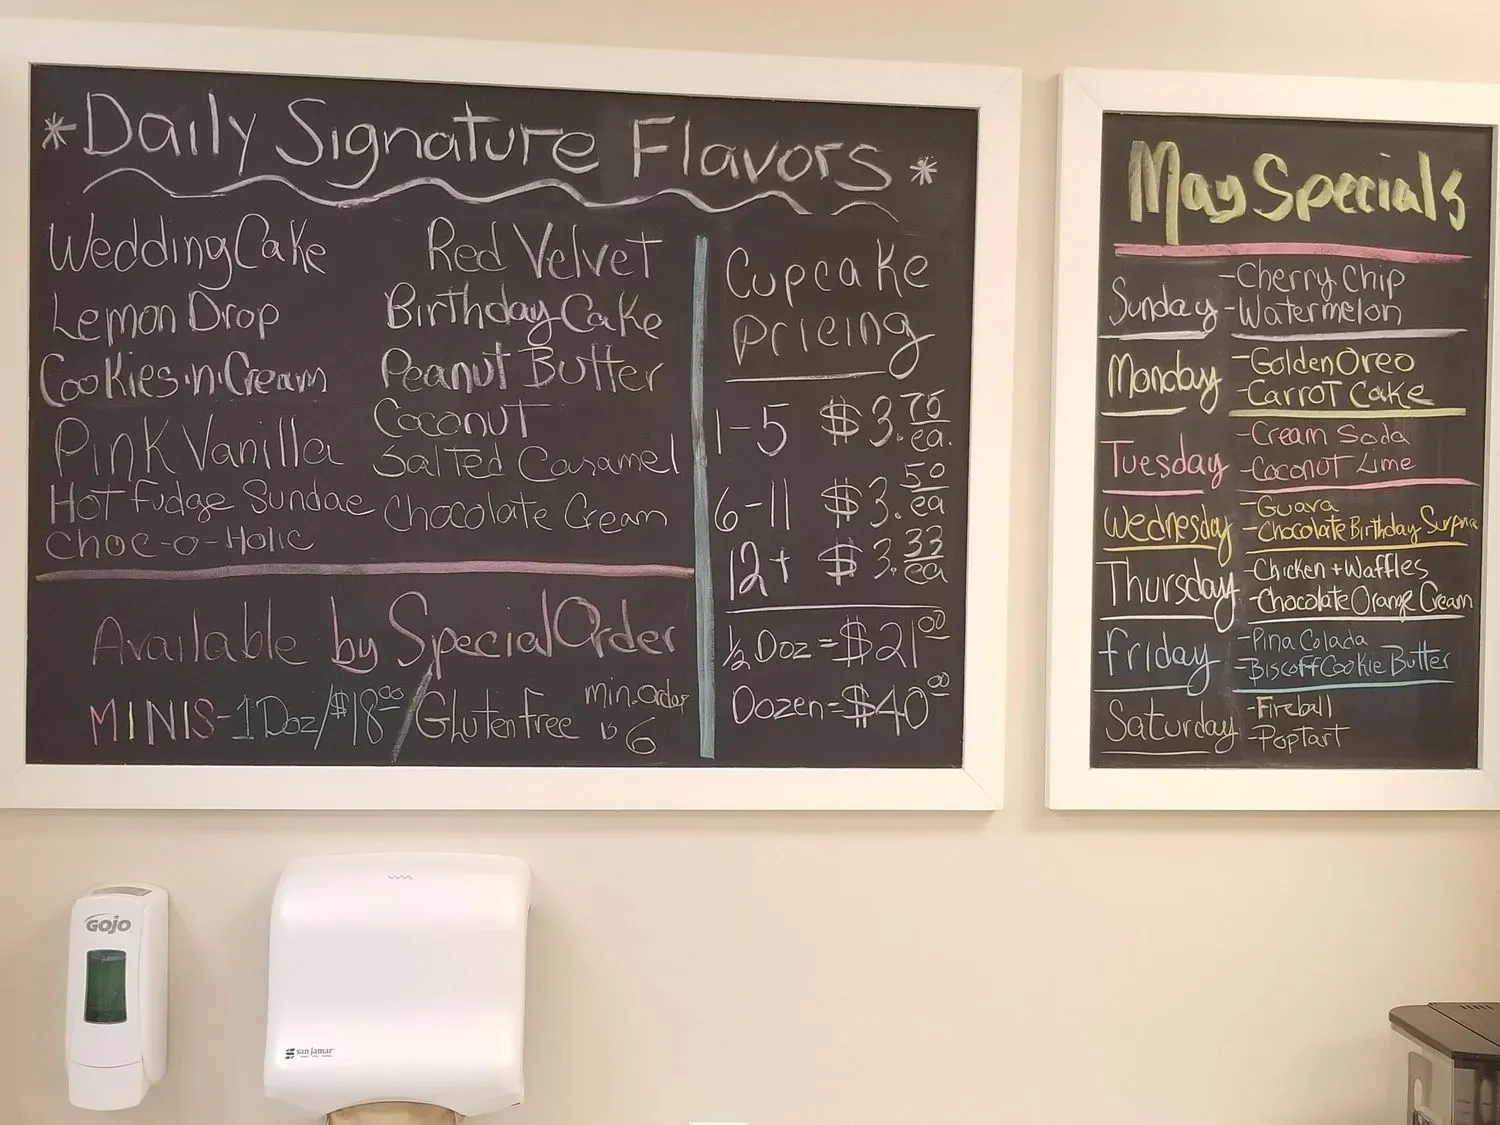 *Daily Signature Flavors*
Wedding Cake
Lemon Drop
Cookies 'n' Cream
Pink Vanilla
Hot Fudge Sundae
Choc-o-Holic
Red Velvet
Birthday Cake
Peanut Butter
Coconut
Salted Caramel
Chocolate Cream
Cupcake
Pricing
1-5 $3.75 ea.
6-11 $3.50 ea
12+ $3.33 ea
1/2 Doz = $21.00
Dozen = $40.00
Available by Special Order
MINIS - 1 Doz/$18.00 / Gluten Free min. order is 6
May Specials
Sunday - Cherry Chip
- Watermelon
Monday - Golden Oreo
- Carrot Cake
Tuesday - Cream Soda
- Coconut Lime
Wednesday - Guava
- Chocolate Birthday Surprise
Thursday - Chicken + Waffles
- Chocolate Orange Cream
Friday - Pina Colada
- Biscoff Cookie Butter
Saturday - Fireball
- Poptart
GOJO
san jamar